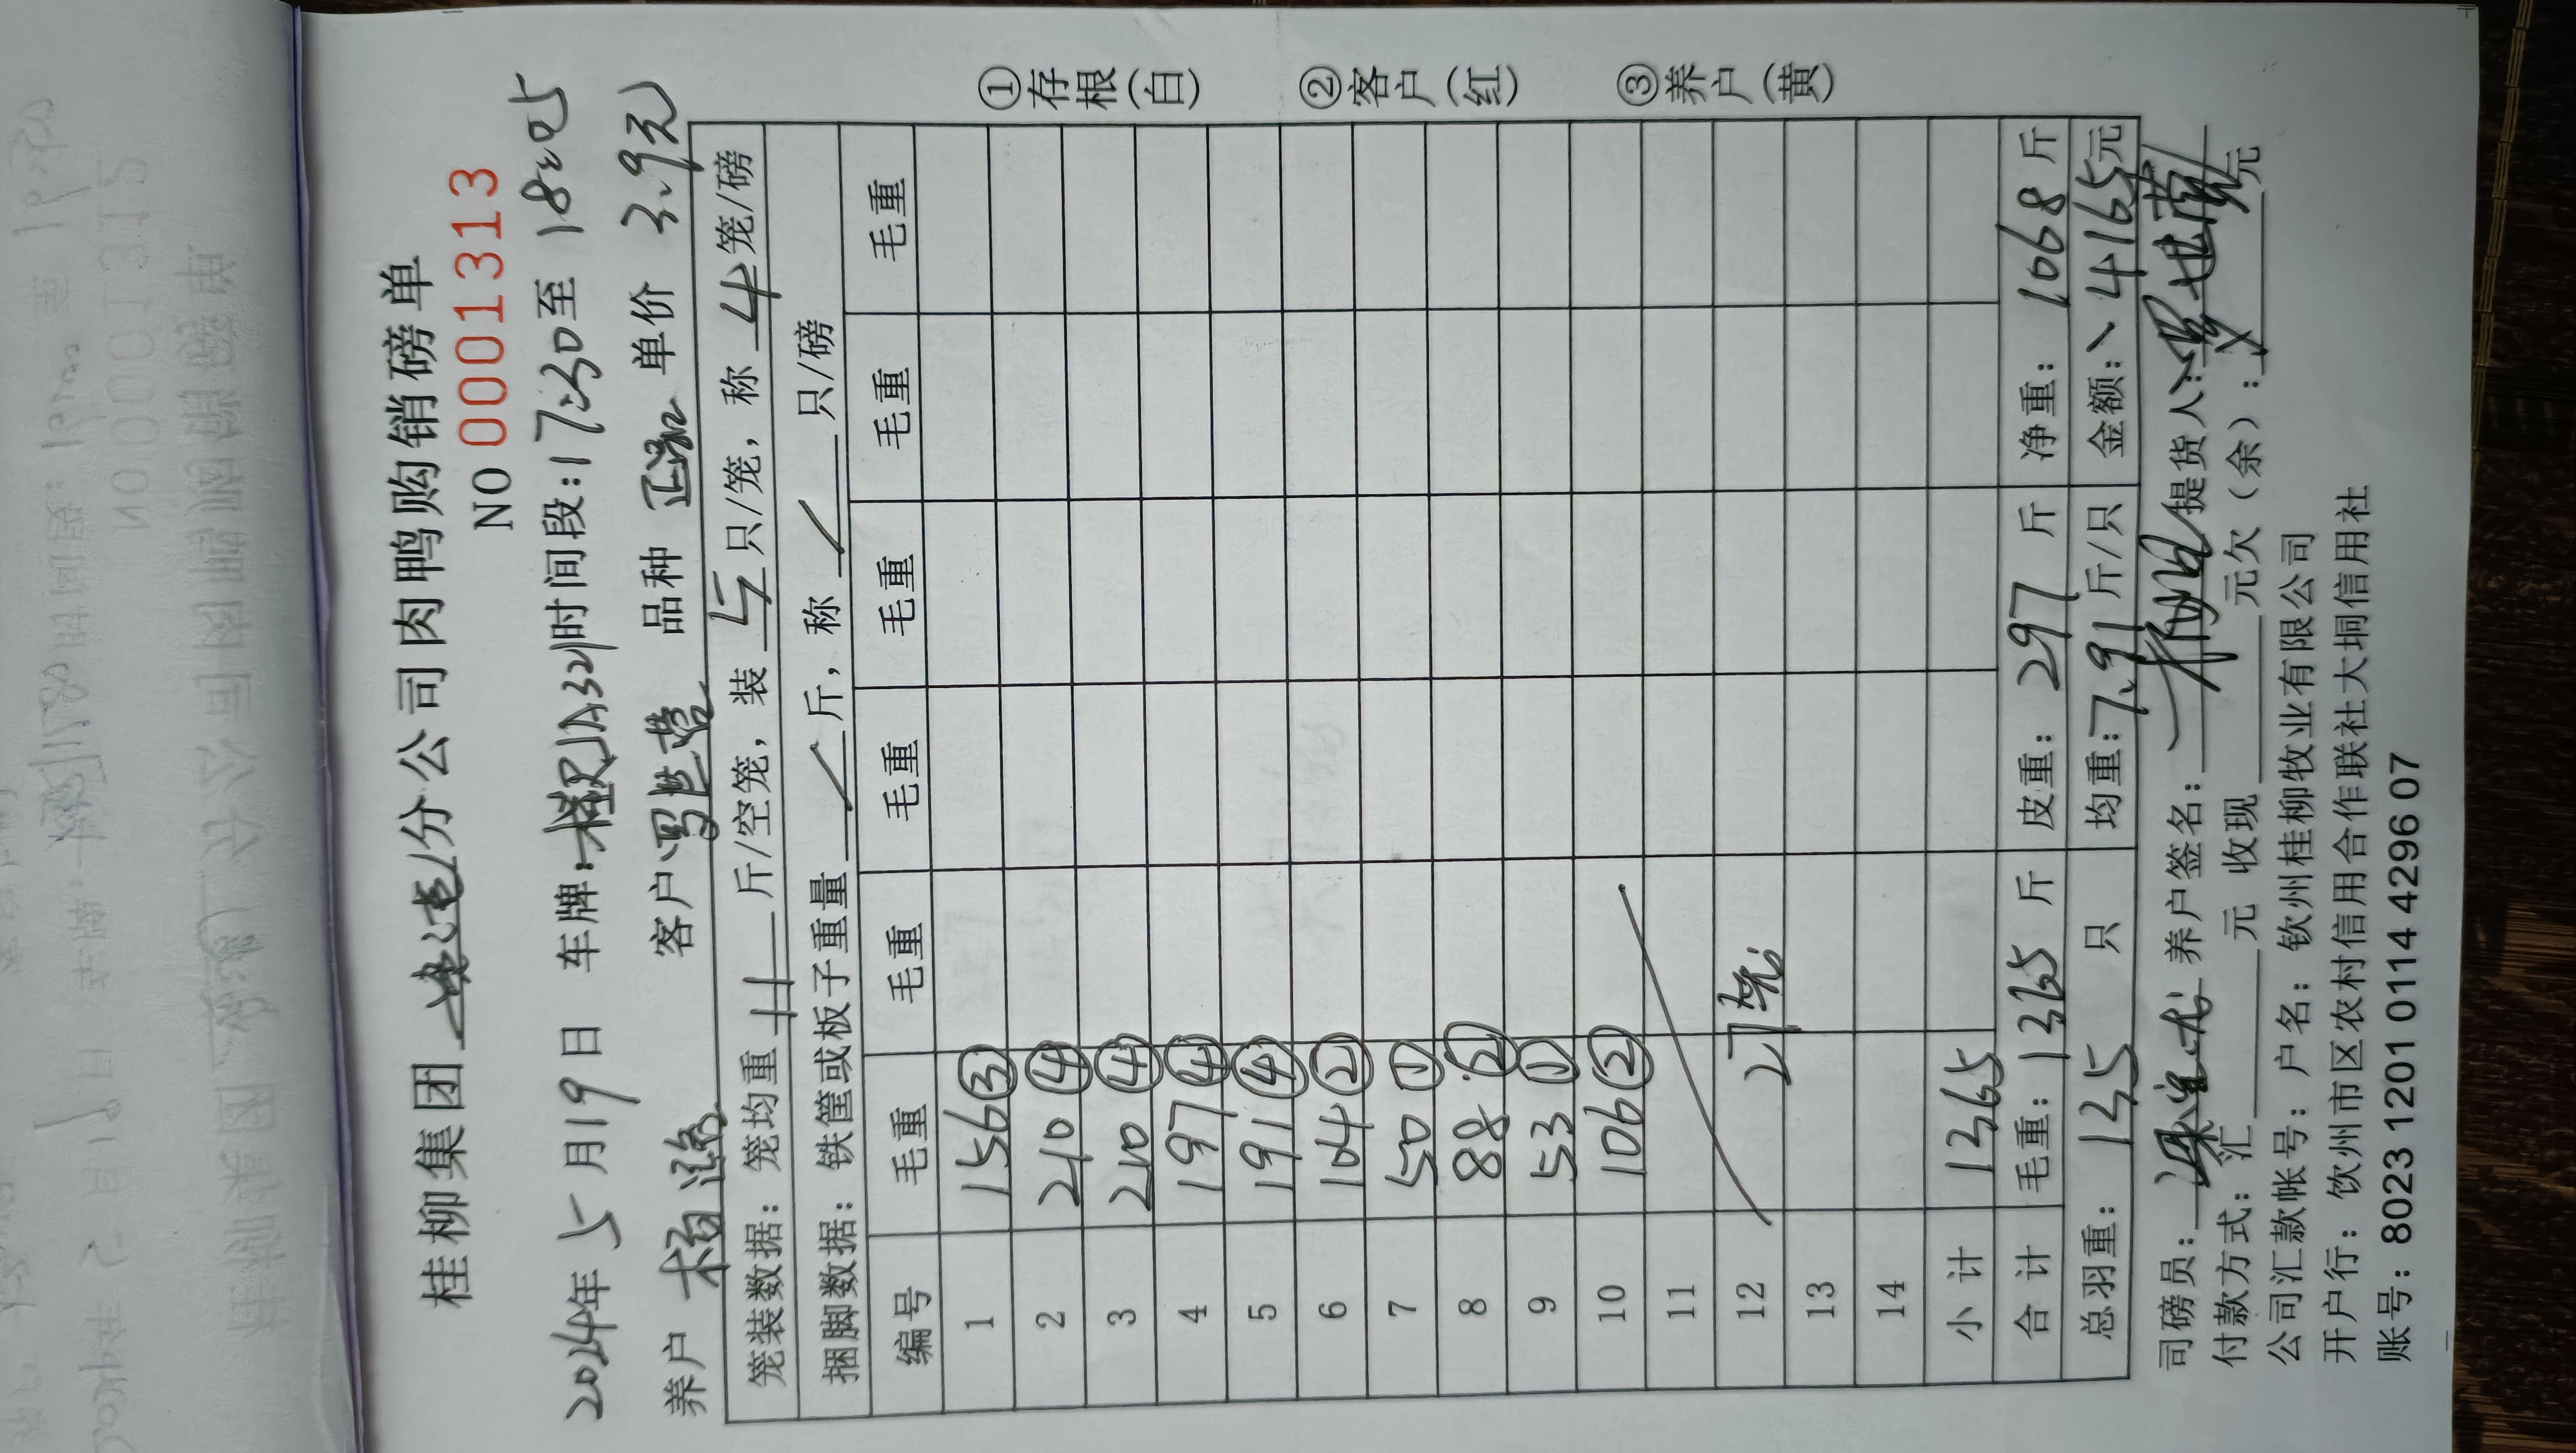 桂柳集团 分公司肉鸭购销磅单
NO 0001313
2024年 5月19日 车牌: A321 时间段:17:30至 18:05
养户 柏海 客户 罗世营 品种 正品 单价 3.9元
笼装数据: 笼均重 11 斤/空笼, 装 5 只/笼, 称 4 笼/磅
捆脚数据: 铁筐或板子重量 / 斤, 称 / 只/磅
编号 毛重 毛重 毛重 毛重 毛重 毛重
1 156 ③
2 210 ④
3 210 ④
4 197 ④
5 191 ④
6 104 ②
7 50 ①
8 88 ②
9 53 ①
10 106 ②
11
12 27笼
13
14
小计 1365
合计 毛重: 1365 斤 皮重: 297 斤 净重: 1068 斤
总羽重: 135 只 均重: 7.91 斤/只 金额: 4165元
司磅员: 养户签名: 提货人:
付款方式: 汇 元 收现 元欠（余）: 元
公司汇款帐号: 户名: 钦州桂柳牧业有限公司
开户行: 钦州市区农村信用合作联社大垌信用社
账号: 8023 1201 0114 4296 07
①存根(白)
②客户(红)
③养户(黄)